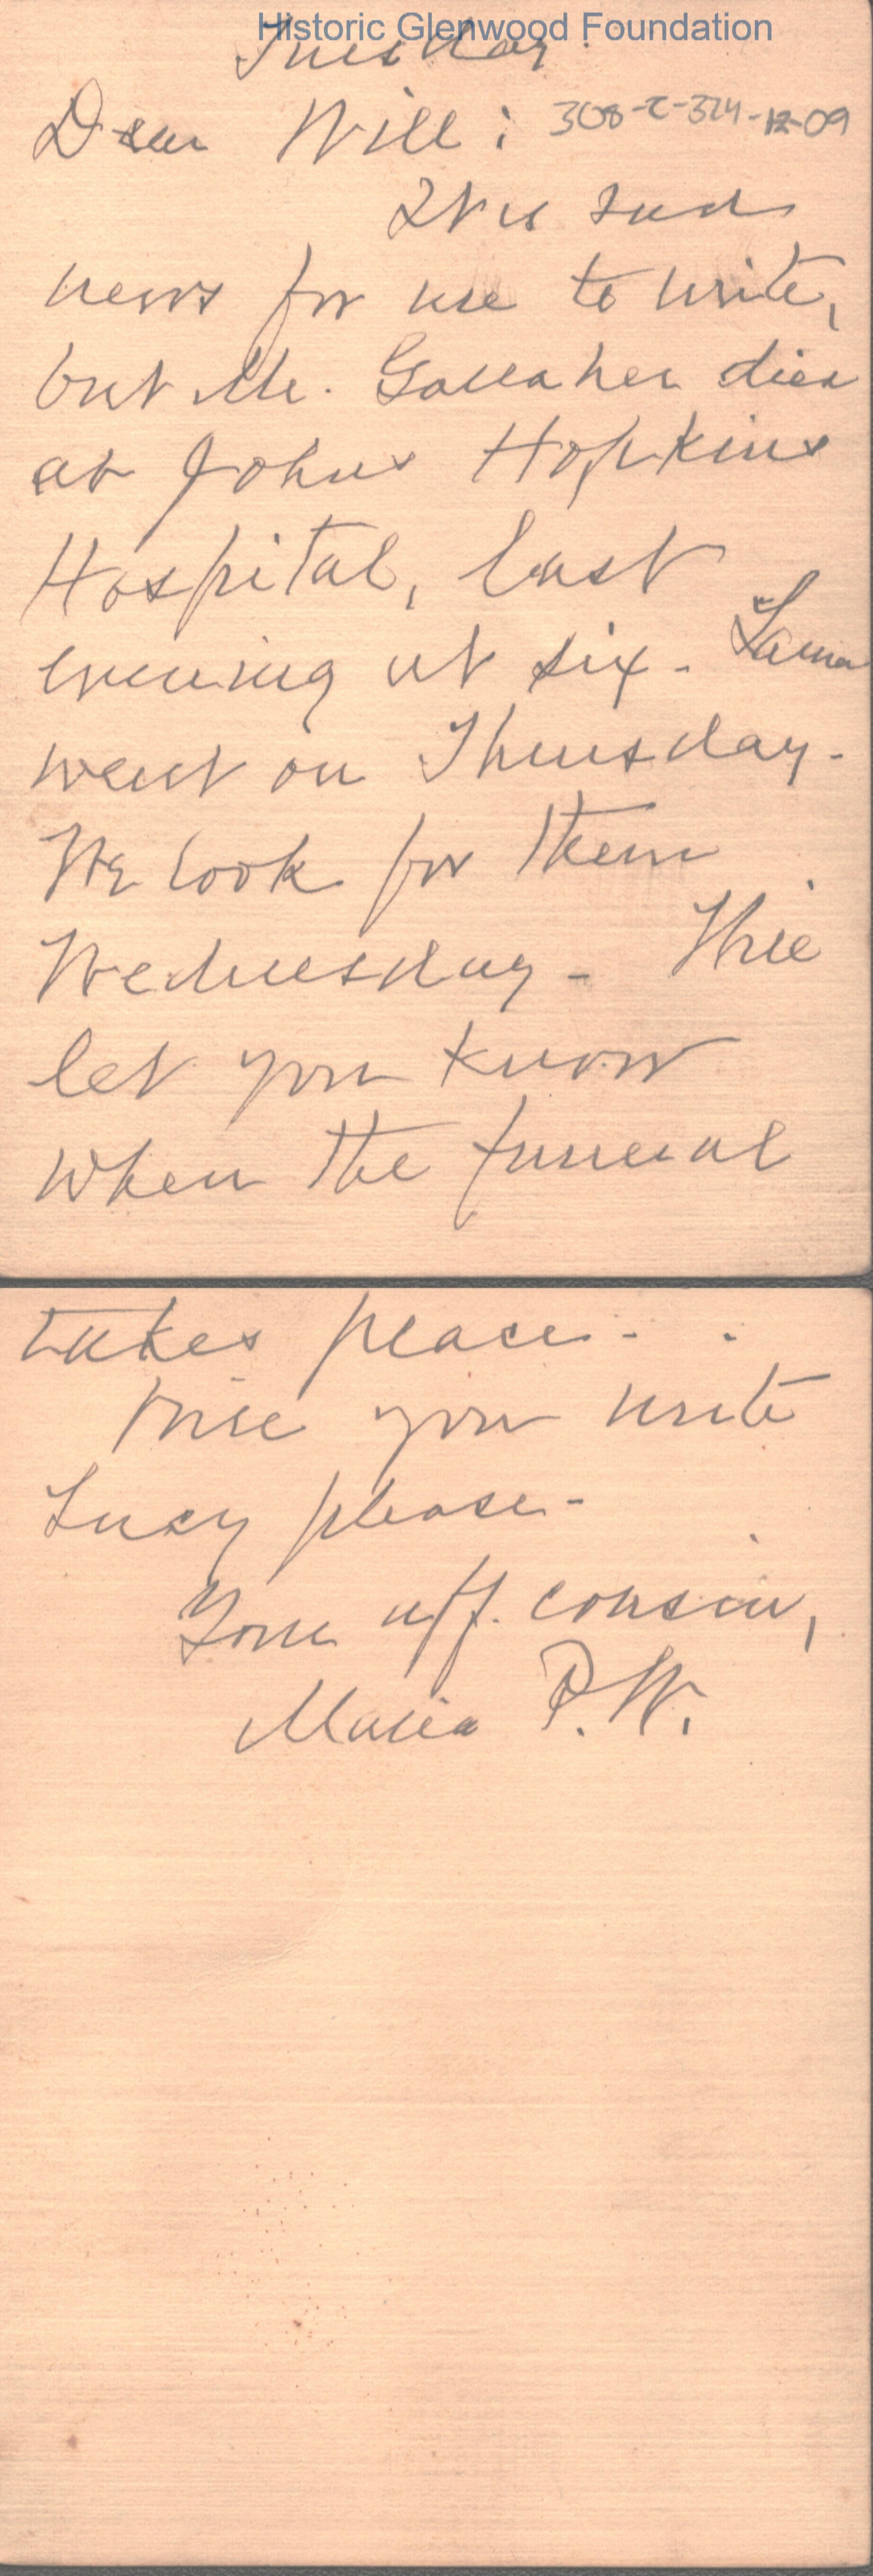 Historic Glenwood Foundation
Tuesday.
Dear Will: 308-C-324-12-09
It is sad
news for me to write,
but Mr. Gallaher died
at Johns Hopkins
Hospital, last
evening at six - Laura
went on Thursday -
We look for them
Wednesday - Will
let you know
when the funeral
takes place -
Will you write
Lucy please -
Your aff. cousin,
Maria P. W.